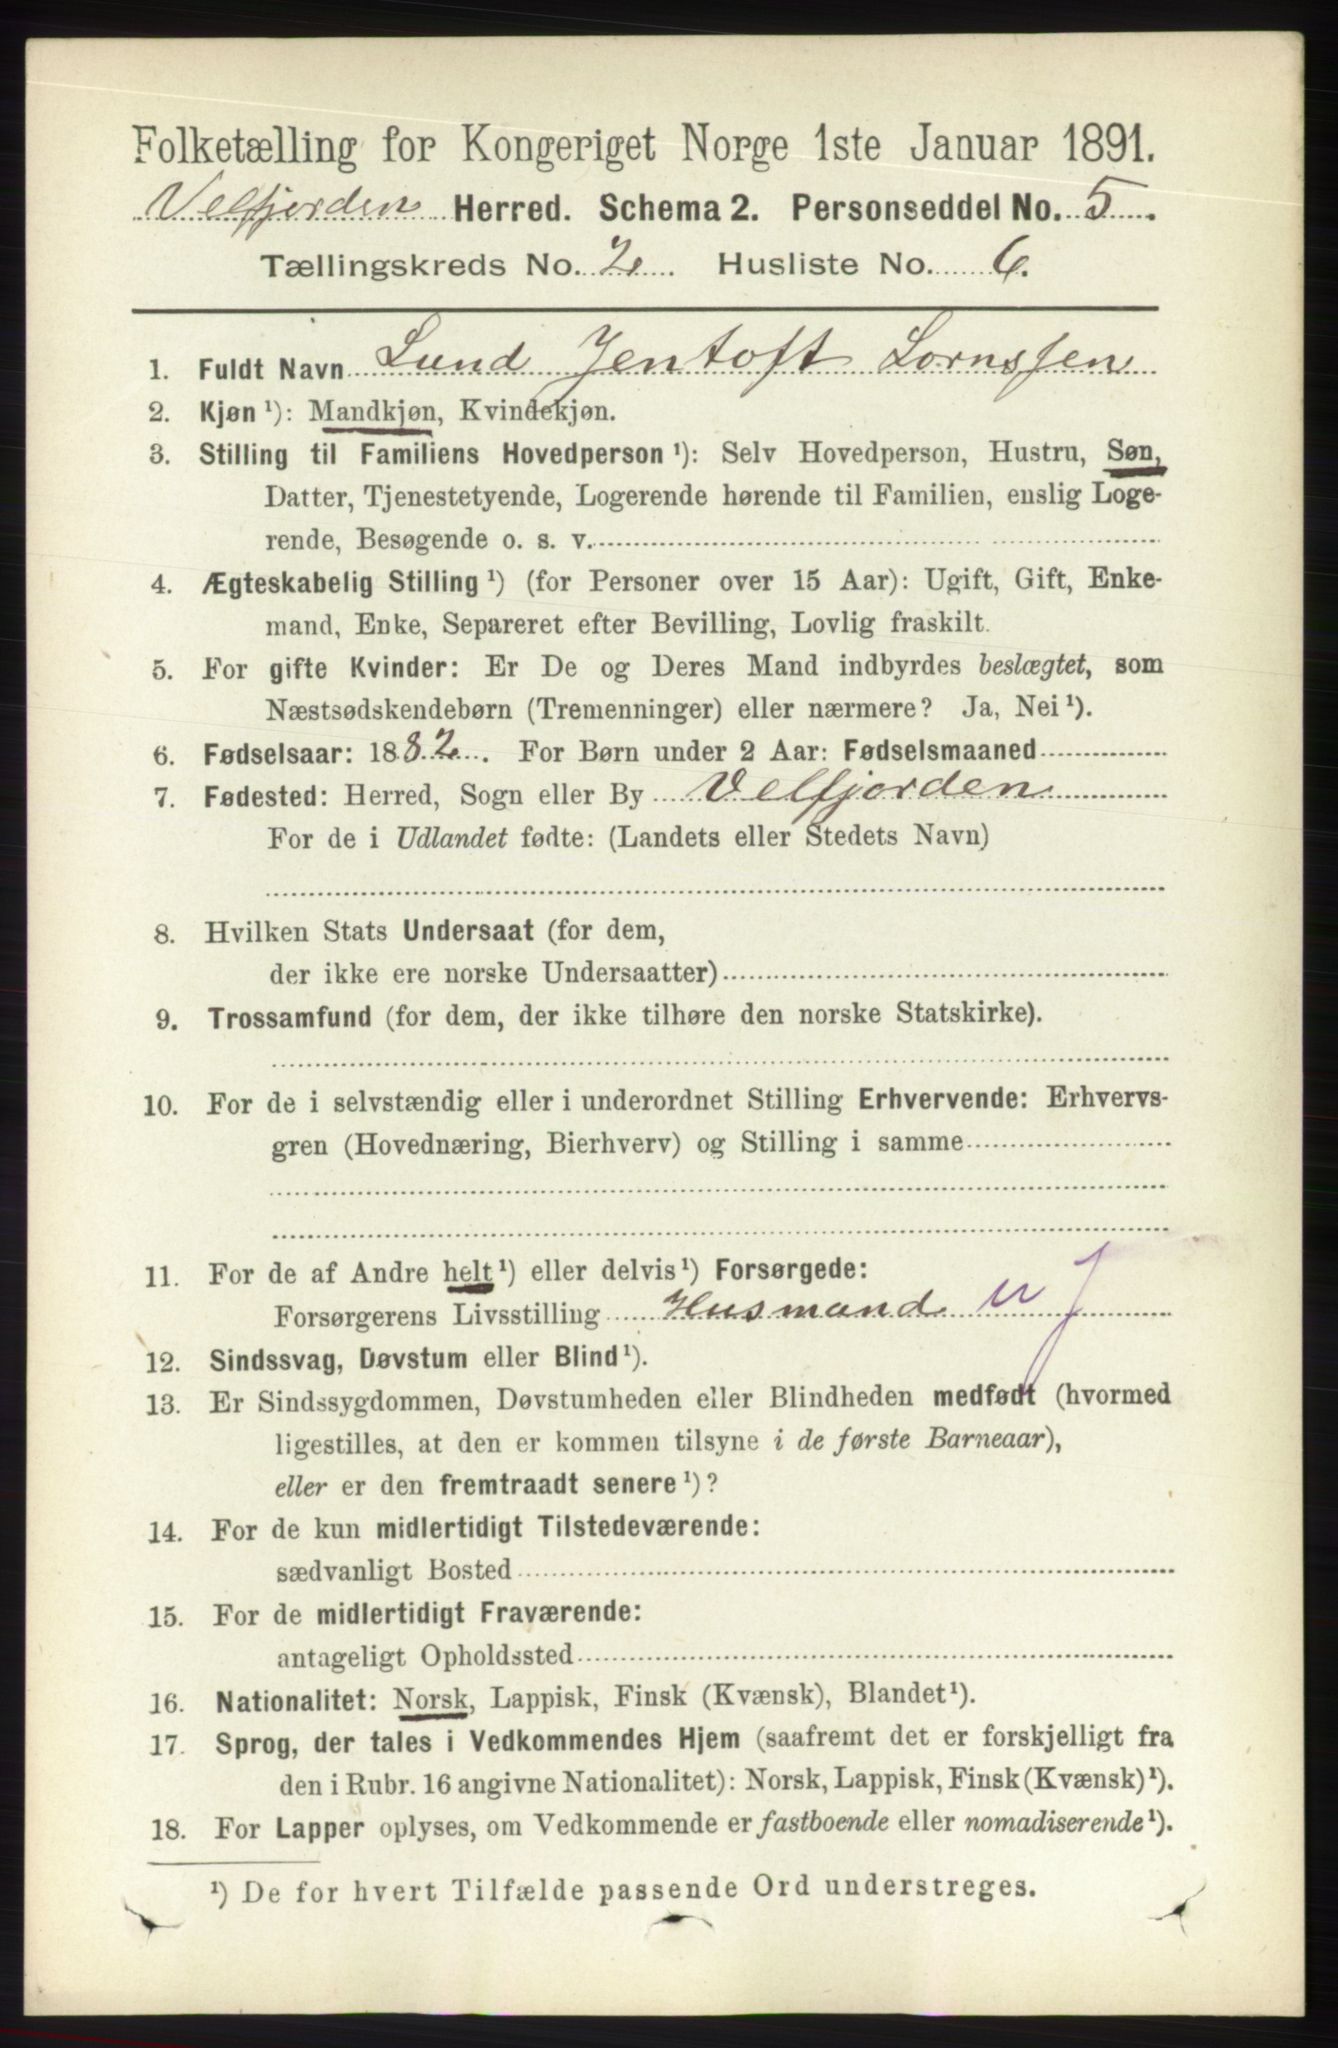 Folketælling for Kongeriget Norge 1ste Januar 1891.
Velfjorden Herred. Schema 2. Personseddel No. 5.
Tællingskreds No. 2. Husliste No. 6.
1. Fuldt Navn Lund Jentoft Lornssen
2. Kjøn ¹): Mandkjøn, Kvindekjøn.
3. Stilling til Familiens Hovedperson ¹): Selv Hovedperson, Hustru, Søn,
Datter, Tjenestetyende, Logerende hørende til Familien, enslig Loge-
rende, Besøgende o. s. v.
4. Ægteskabelig Stilling ¹) (for Personer over 15 Aar): Ugift, Gift, Enke-
mand, Enke, Separeret efter Bevilling, Lovlig fraskilt.
5. For gifte Kvinder: Er De og Deres Mand indbyrdes beslægtet, som
Næstsødskendebørn (Tremenninger) eller nærmere? Ja, Nei ¹).
6. Fødselsaar: 1882. For Børn under 2 Aar: Fødselsmaaned
7. Fødested: Herred, Sogn eller By Velfjorden
For de i Udlandet fødte: (Landets eller Stedets Navn)
8. Hvilken Stats Undersaat (for dem,
der ikke ere norske Undersaatter)
9. Trossamfund (for dem, der ikke tilhøre den norske Statskirke).
10. For de i selvstændig eller i underordnet Stilling Erhvervende: Erhvervs-
gren (Hovednæring, Bierhverv) og Stilling i samme
11. For de af Andre helt ¹) eller delvis ¹) Forsørgede:
Forsørgerens Livsstilling Husmand m J
12. Sindssvag, Døvstum eller Blind ¹).
13. Er Sindssygdommen, Døvstumheden eller Blindheden medfødt (hvormed
ligestilles, at den er kommen tilsyne i de første Barneaar),
eller er den fremtraadt senere ¹)?
14. For de kun midlertidigt Tilstedeværende:
sædvanligt Bosted
15. For de midlertidigt Fraværende:
antageligt Opholdssted
16. Nationalitet: Norsk, Lappisk, Finsk (Kvænsk), Blandet ¹).
17. Sprog, der tales i Vedkommendes Hjem (saafremt det er forskjelligt fra
den i Rubr. 16 angivne Nationalitet): Norsk, Lappisk, Finsk (Kvænsk) ¹).
18. For Lapper oplyses, om Vedkommende er fastboende eller nomadiserende ¹).
¹) De for hvert Tilfælde passende Ord understreges.